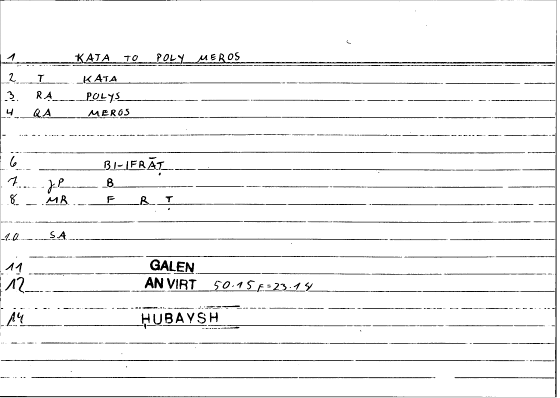 1 KATA TO POLY MEROS
2 T KATA
3 RA POLYS
4 QA MEROS
6 BI-IFRĀṬ
7 JP B
8 MR F R Ṭ
10 SA
11 GALEN
12 AN VIRT 50.15 F=23.14
14 ḤUBAYSH